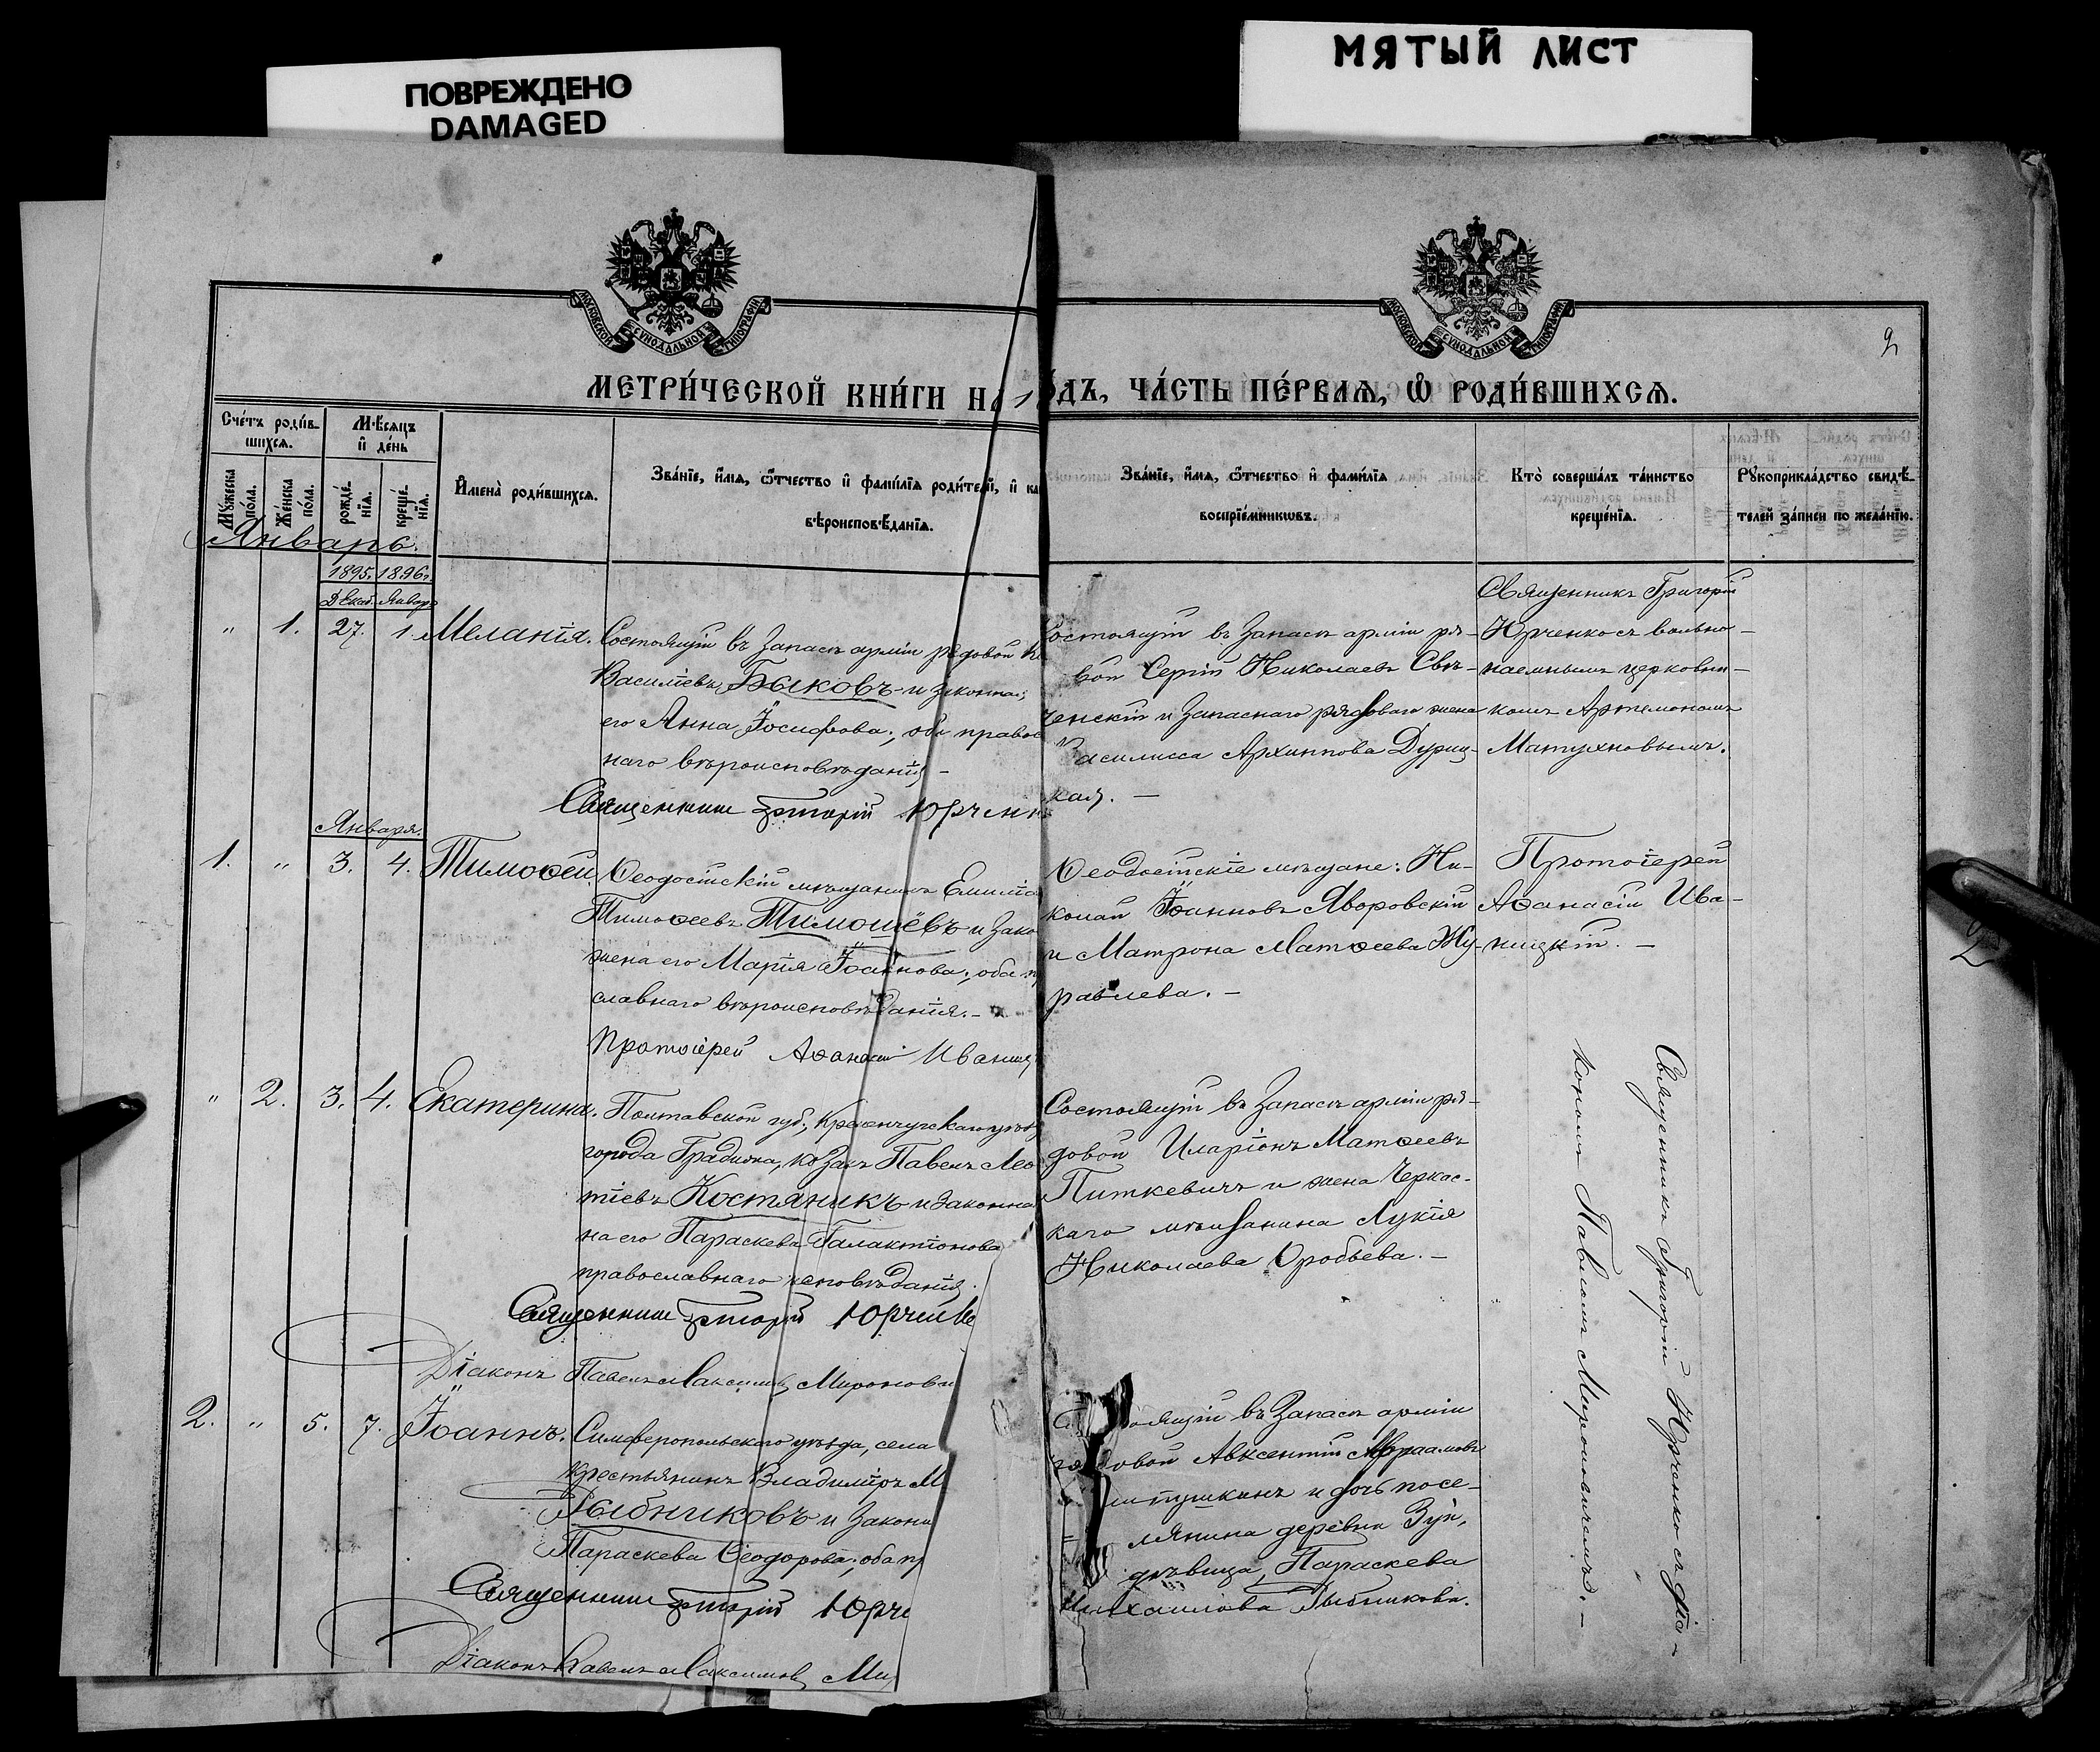 ПОВРЕЖДЕНО
DAMAGED
МЯТЫЙ ЛИСТ
МОСКОВСКОЙ СѴНОДАЛЬНОЙ ТИПОГРАФІИ
МОСКОВСКОЙ СѴНОДАЛЬНОЙ ТИПОГРАФІИ
2
МЕТРИ́ЧЕСКОЙ КНИ́ГИ НА 1
ОДЪ, ЧА́СТЬ ПЕ́РВАЯ, Ѡ РОДИ́ВШИХСЯ.
Сче́тъ роди́в-
шихся.
Мѣсяцъ
и де́нь
Му́жеска
по́ла.
Же́нска
по́ла.
рожде́-
нія.
креще́-
нія.
Имена̀ роди́вшихся.
Зва́ніе, и́мя, ѻ́тчество и фами́лія роди́телей, и ка
вѣроисповѣ́данія.
Зва́ніе, и́мя, ѻ́тчество и фами́лія
воспріе́мниковъ.
Кто̀ соверша́лъ та́инство
креще́нія.
Рꙋкоприкла́дство свидѣ́-
телей за́писи по жела́нію.
Январь.
1895. 1896г.
Декаб. Январ
" 1. 27. 1. Меланія.
Состоящій въ запасѣ арміи рядовой
Василіевъ Быковъ и законная
его Анна Іосифова; оба правос
наго вѣроисповѣданія –
Священникъ Григорій Юрченк
Состоящій въ запасѣ арміи ря-
вой Сергій Николаевъ Свѣ-
ченскій и запаснаго рядоваго жена
Василисса Архиппова Дуриц-
кая. –
Священникъ Григорій
Юрченко съ вольно-
наемнымъ церковни-
комъ Артемономъ
Матухновымъ.
Января.
1. " 3. 4. Тимоѳей.
Ѳеодосійскій мѣщанинъ Емилі
Тимоѳеевъ Тимошёвъ и зако
жена его Марія Іоаннова; оба п
славнаго вѣроисповѣданія. –
Протоіерей Аѳанасій Иваниц
Ѳеодосійскіе мѣщане: Ни-
колай Іоанновъ Яворовскій
и Матрона Матѳеева Жу-
равлева. –
Протоіерей
Аѳанасій Ива-
ницкій. –
2
" 2. 3. 4. Екатерина.
Полтавской губ., Кременчугскаго уѣз
города Градижа, козакъ Павелъ Лео
тіевъ Костяникъ и законна
на его Параскева Галактіонова
православнаго исповѣданія.
Священникъ Григорій Юрченко
Діаконъ Павелъ Максимовъ Миронови
Состоящій въ запасѣ арміи ря-
довой Иларіонъ Матѳеевъ
Питкевичъ и жена Черкас-
каго мѣщанина Лукія
Николаева Оробьева. –
Священникъ Григорій Юрченко съ діа-
кономъ Павломъ Мироновичемъ. –
2. " 5. 7. Іоаннъ.
Симферопольскаго уѣзда, села
крестьянинъ Владиміръ М
Рыбниковъ и законн
Параскева Ѳеодорова; оба пр
Священникъ Григорій Юрче
Діаконъ Павелъ Максимовъ Ми
оящій въ запасѣ арміи
овой Авксентій Авраамовъ
и дочь посе-
лянина деревни Зуи,
дѣвица, Параскева
Михаилова Рыбникова.